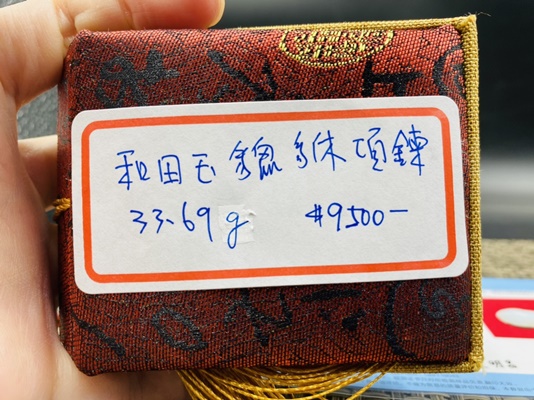 和田玉貔貅項鍊
33.69g #9500-